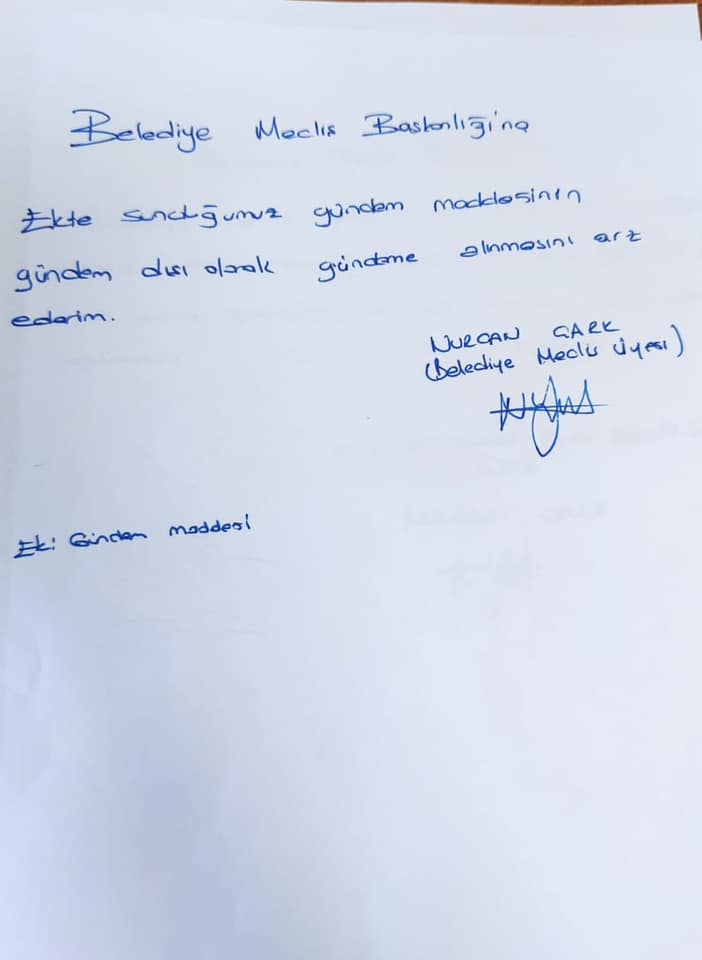 Belediye Meclis Başkanlığı'na
Ekte sunduğumuz gündem maddesinin
gündem dışı olarak gündeme alınmasını arz
ederim.
NURCAN ÇARK
(Belediye Meclis Üyesi)
Ek: Gündem maddesi